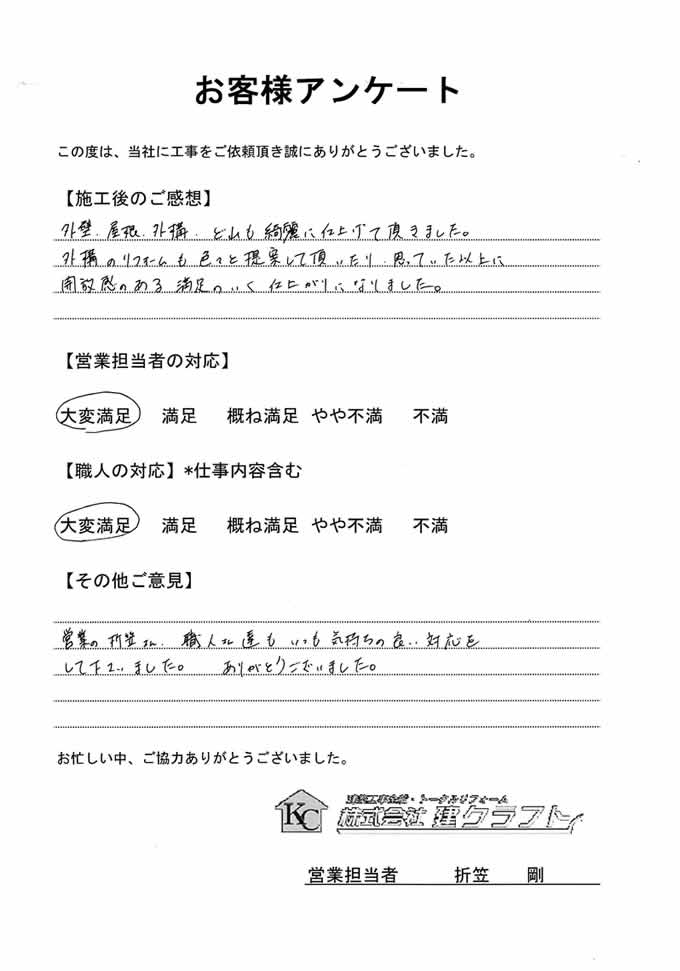 お客様アンケート
この度は、当社に工事をご依頼頂き誠にありがとうございました。
【施工後のご感想】
外壁.屋根.外構.どれも綺麗に仕上げて頂きました。
外構のリフォームも色々と提案して頂いたり.思っていた以上に
開放感のある満足のいく仕上がりになりました。
【営業担当者の対応】
大変満足 満足 概ね満足 やや不満 不満
【職人の対応】*仕事内容含む
大変満足 満足 概ね満足 やや不満 不満
【その他ご意見】
営業の折笠さん.職人さん達もいつも気持ちの良い対応を
して下さいました。 ありがとうございました。
お忙しい中、ご協力ありがとうございました。
KC
建築工事全般・トータルリフォーム
株式会社 建クラフト
営業担当者 折笠 剛